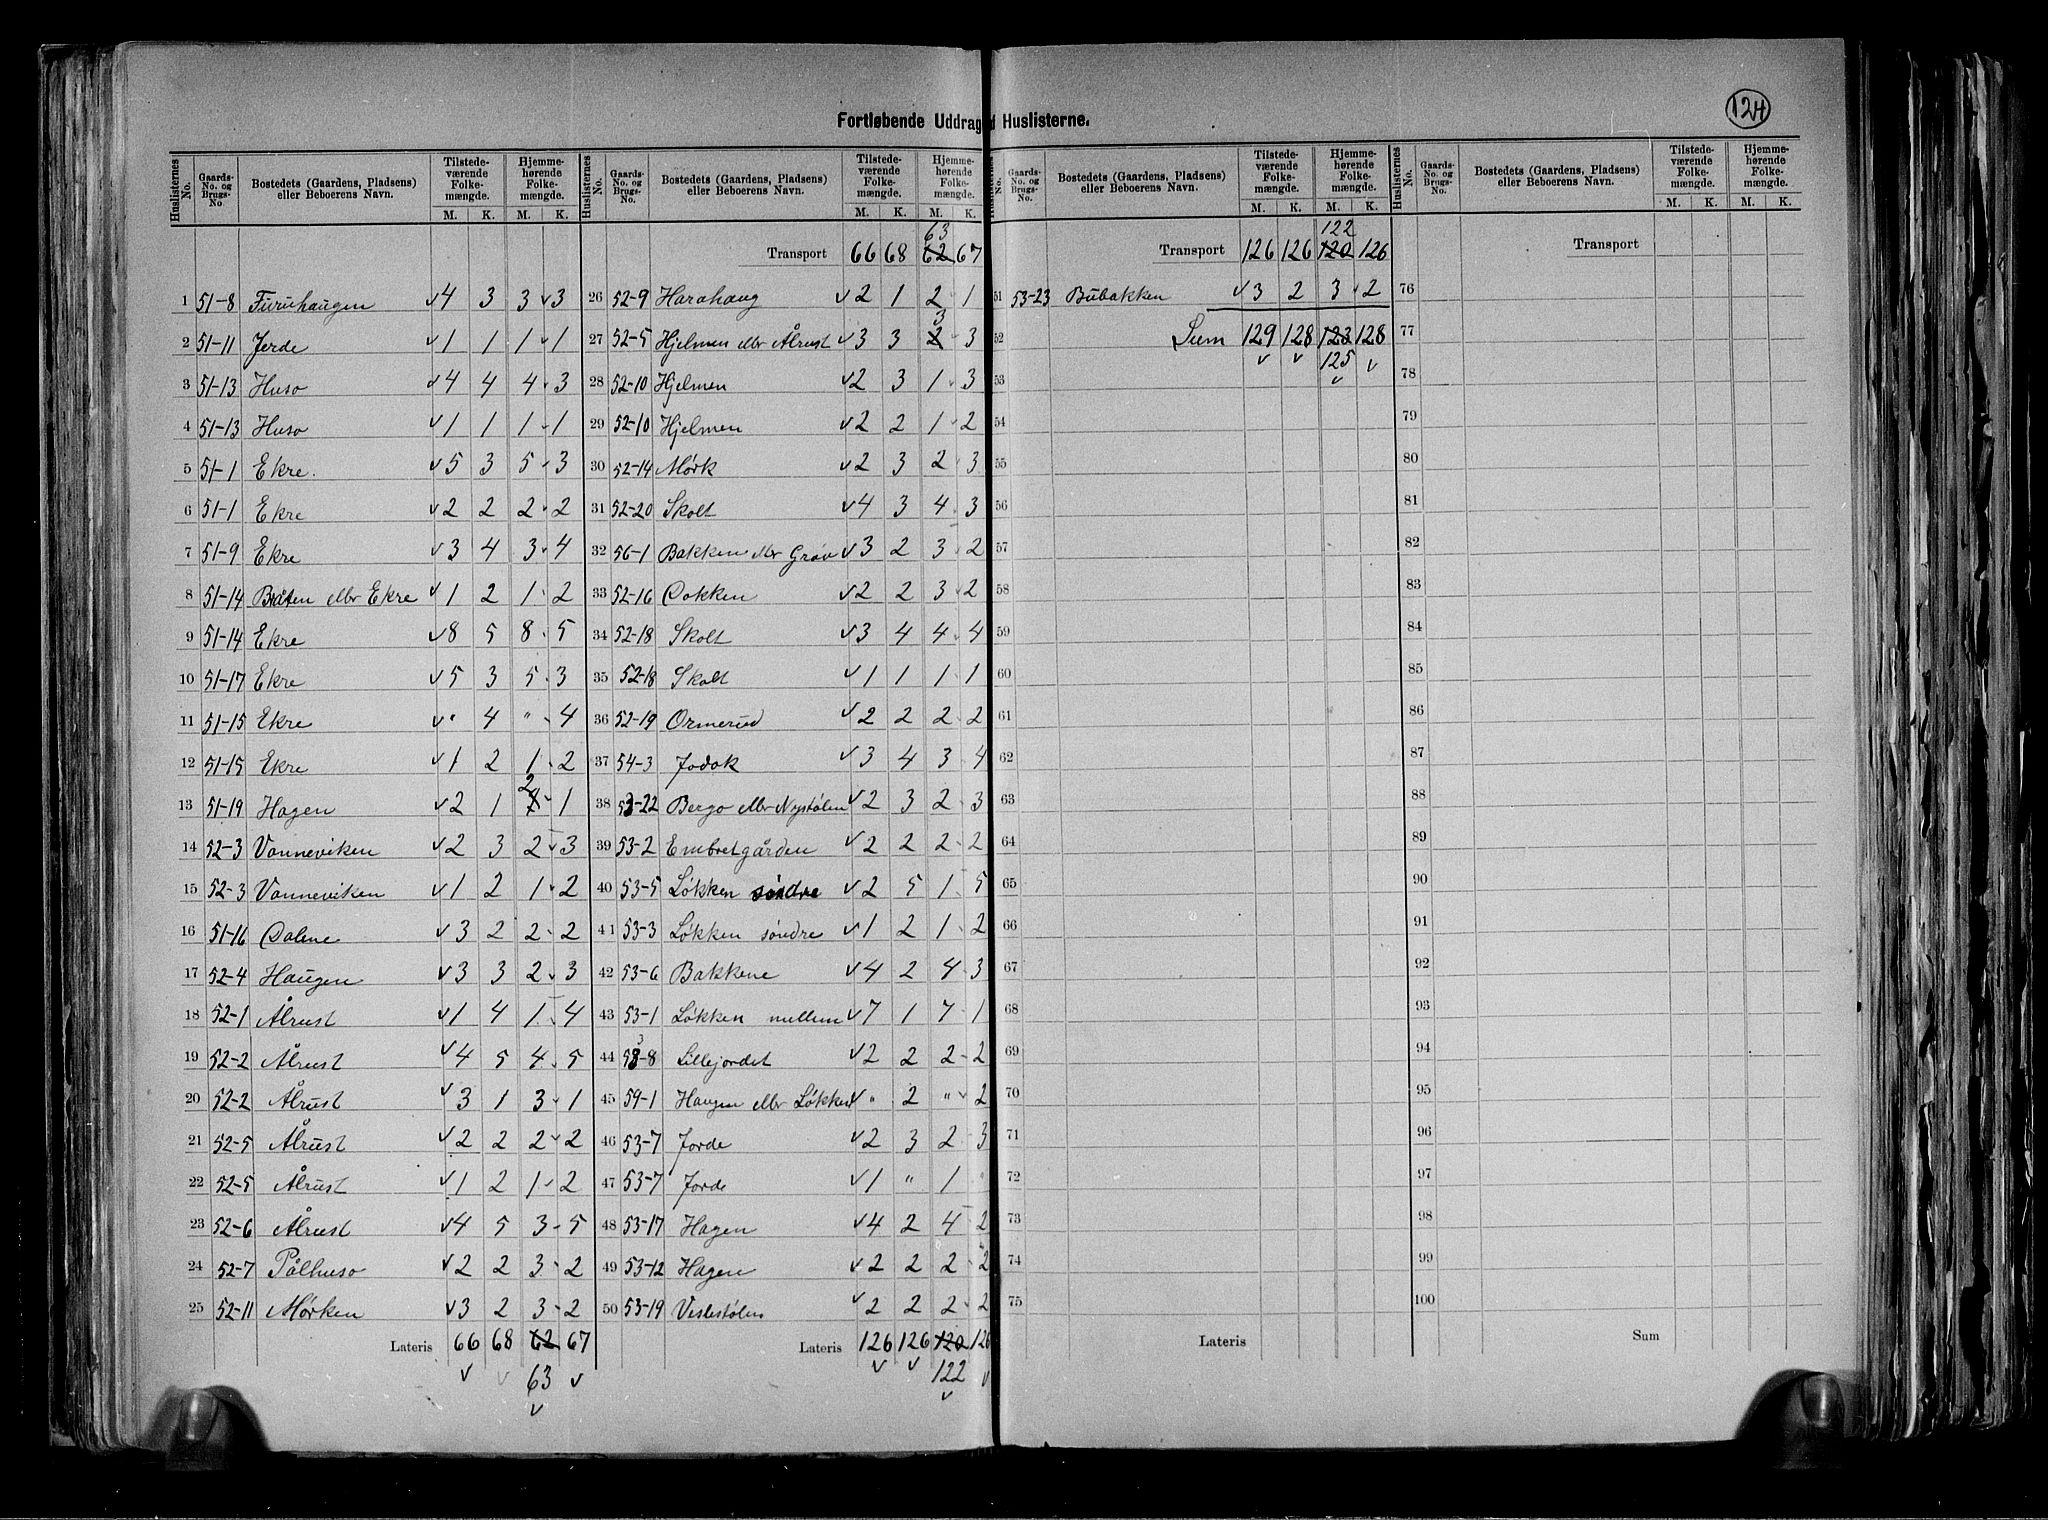 124
Fortløbende Uddrag Huslisterne.
Huslisternes No. Gaards-No. og Brugs-No Bostedets (Gaardens, Pladsens) eller Beboerens Navn. Tilstedeværende Folkemængde. M. K. Hjemmehørende Folkemængde. M. K.
1 51-8 Furuhaugen 4 3 3 3
2 51-11 Jerde 1 1 1 1
3 51-13 Huso 4 4 4 3
4 51-13 Huso 1 1 1 1
5 51-1 Ekre. 5 3 5 3
6 51-1 Ekre 2 2 2 2
7 51-9 Ekre 3 4 3 4
8 51-14 Bråten ellr Ekre 1 2 1 2
9 51-14 Ekre 8 5 8 5
10 51-17 Ekre 5 3 5 3
11 51-15 Ekre " 4 " 4
12 51-15 Ekre 1 2 1 2
13 51-19 Hagen 2 1 2 1
14 52-3 Vanneviken 2 3 2 3
15 52-3 Vanneviken 1 2 1 2
16 51-16 Dalene 3 2 2 2
17 52-4 Haugen 3 3 2 3
18 52-1 Ålrust 1 4 1 4
19 52-2 Ålrust 4 5 4 5
20 52-2 Ålrust 3 1 3 1
21 52-5 Ålrust 2 2 2 2
22 52-5 Ålrust 1 2 1 2
23 52-6 Ålrust 4 5 3 5
24 52-7 Pålhuso 2 2 3 2
25 52-11 Mørken 3 2 3 2
Lateris 66 68 62 67
63
Huslisternes No. Gaards-No. og Brugs-No. Bostedets (Gaardens, Pladsens) eller Beboerens Navn. Tilstedeværende Folkemængde. M. K. Hjemmehørende Folkemængde. M. K.
63
Transport 66 68 62 67
26 52-9 Harahaug 2 1 2 1
3
27 52-5 Hjelmen ellr Ålrust 3 3 2 3
28 52-10 Hjelmen 2 3 1 3
29 52-10 Hjelmen 2 2 1 2
30 52-14 Mørk 2 3 2 3
31 52-20 Skolt 4 3 4 3
32 56-1 Bakken ellr Grøv 3 2 3 2
33 52-16 Dokken 2 2 3 2
34 52-18 Skolt 3 4 4 4
35 52-18 Skolt 1 1 1 1
36 52-19 Ormerud 2 2 2 2
37 54-3 Jodok 3 4 3 4
38 53-22 Bergo ellr Nystølen 2 3 2 3
39 53-2 Embretgården 2 2 2 2
40 53-5 Løkken søndre 2 5 1 5
41 53-3 Løkken søndre 1 2 1 2
42 53-6 Bakkene 4 2 4 3
43 53-1 Løkken mellem 7 1 7 1
44 53-8 Lillejordet 2 2 2 2
45 59-1 Haugen ellr Løkken " 2 " 2
46 53-7 Jorde 2 3 2 3
47 53-7 Jorde 1 " 1 "
48 53-17 Hagen 4 2 4 2
49 53-12 Hagen 2 2 2 2
50 53-19 Veslestølen 2 2 2 2
Lateris 126 126 120 126
122
Huslisternes No. Gaards-No. og Brugs-No. Bostedets (Gaardens, Pladsens) eller Beboerens Navn. Tilstedeværende Folkemængde. M. K. Hjemmehørende Folkemængde. M. K.
122
Transport 126 126 120 126
51 53-23 Bubakken 3 2 3 2
52 Sum 129 128 123 128
125
53
54
55
56
57
58
59
60
61
62
63
64
65
66
67
68
69
70
71
72
73
74
75
Lateris
Huslisternes No. Gaards-No. og Brugs-No. Bostedets (Gaardens, Pladsens) eller Beboerens Navn. Tilstedeværende Folkemængde. M. K. Hjemmehørende Folkemængde. M. K.
Transport
76
77
78
79
80
81
82
83
84
85
86
87
88
89
90
91
92
93
94
95
96
97
98
99
100
Sum